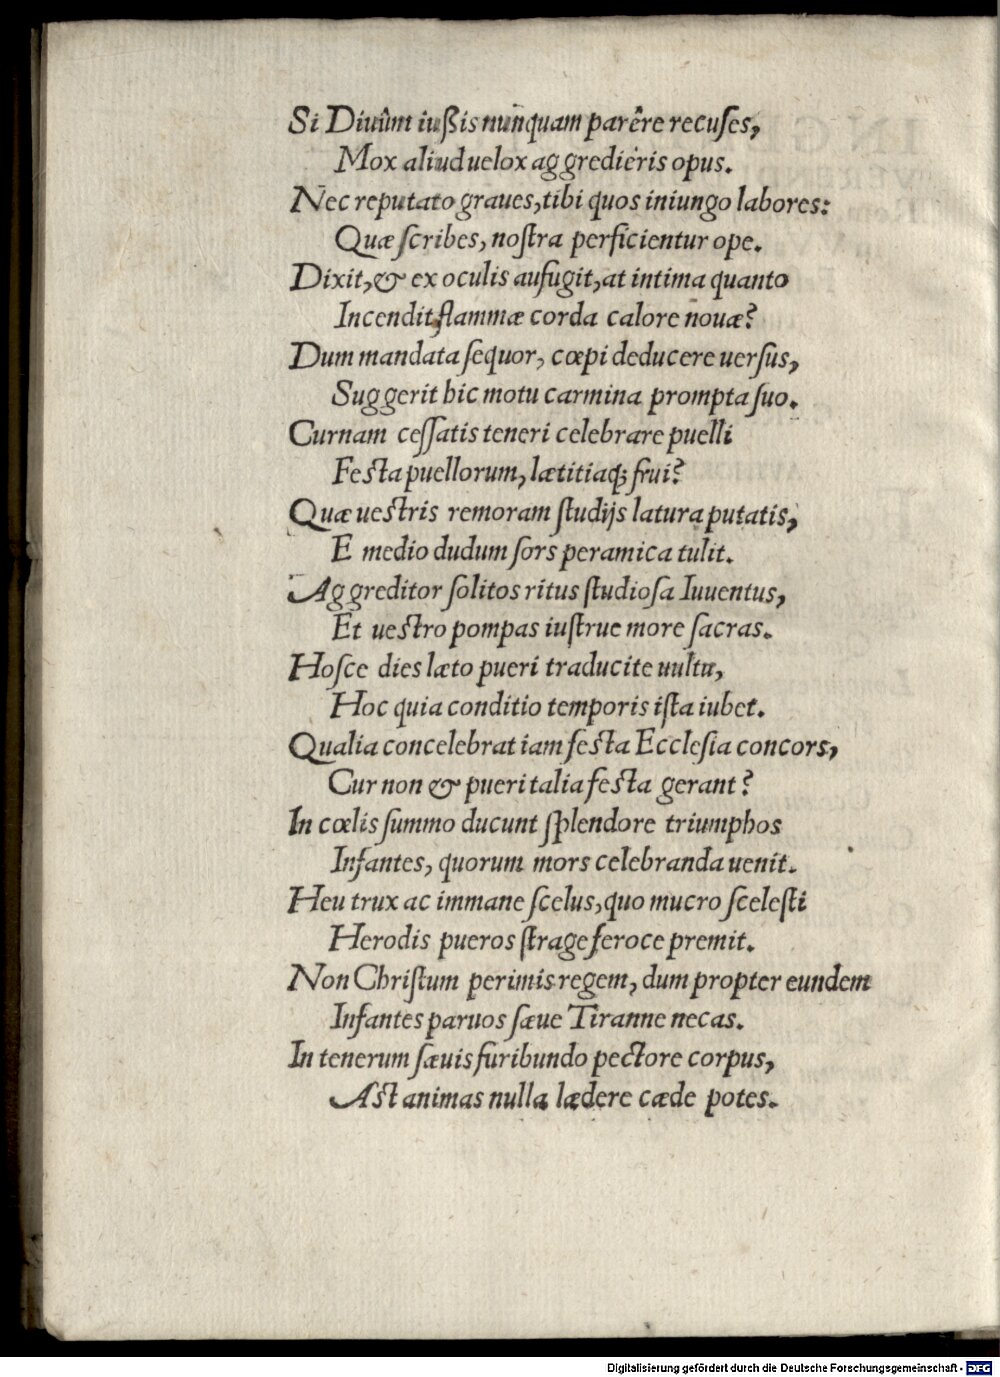 Si Diuûm iußis nunquam parêre recuſes,
Mox aliud uelox aggredieris opus.
Nec reputato graues, tibi quos iniungo labores:
Quæ ſcribes, noſtra perficientur ope.
Dixit, & ex oculis aufugit, at intima quanto
Incendit flammæ corda calore nouæ?
Dum mandata ſequor, cœpi deducere uerſus,
Suggerit hic motu carmina prompta ſuo.
Curnam ceſſatis teneri celebrare puelli
Feſta puellorum, lætitiaq; frui?
Quæ ueſtris remoram ſtudijs latura putatis,
E medio dudum ſors peramica tulit.
Aggreditor ſolitos ritus ſtudioſa Iuuentus,
Et ueſtro pompas iuſtrue more ſacras.
Hoſce dies læto pueri traducite uultu,
Hoc quia conditio temporis iſta iubet.
Qualia concelebrat iam feſta Eccleſia concors,
Cur non & pueri talia feſta gerant?
In cœlis ſummo ducunt ſplendore triumphos
Infantes, quorum mors celebranda uenit.
Heu trux ac immane ſcelus, quo mucro ſceleſti
Herodis pueros ſtrage feroce premit.
Non Chriſtum perimis regem, dum propter eundem
Infantes paruos ſæue Tiranne necas.
In tenerum ſæuis furibundo pectore corpus,
Aſt animas nulla lædere cæde potes.
Digitalisierung gefördert durch die Deutsche Forschungsgemeinschaft - DFG